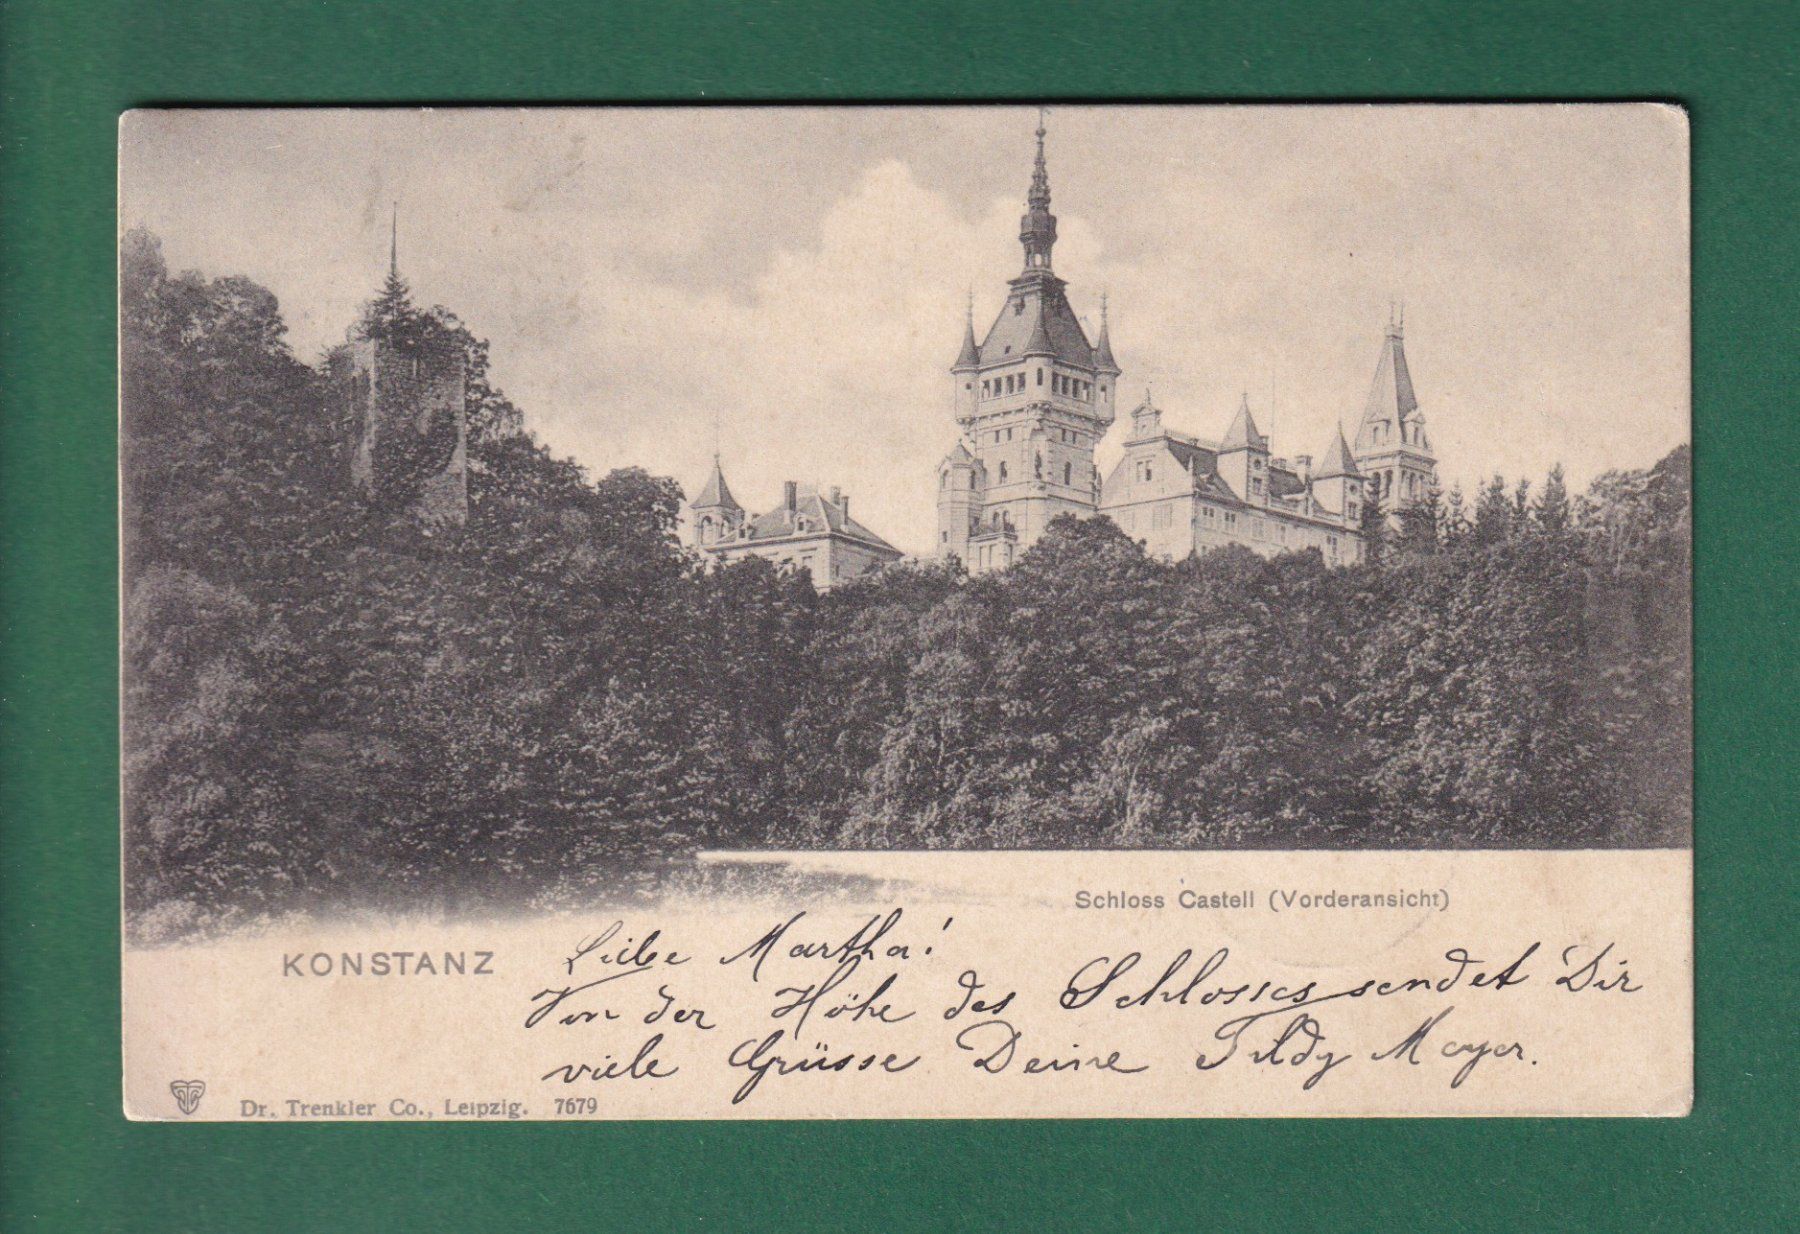 Schloss Castell (Vorderansicht)
KONSTANZ
Liebe Martha!
Von der Höhe des Schlosses sendet Dir
viele Grüsse Deine Tildy Meyer.
Dr. Trenkler Co., Leipzig. 7679